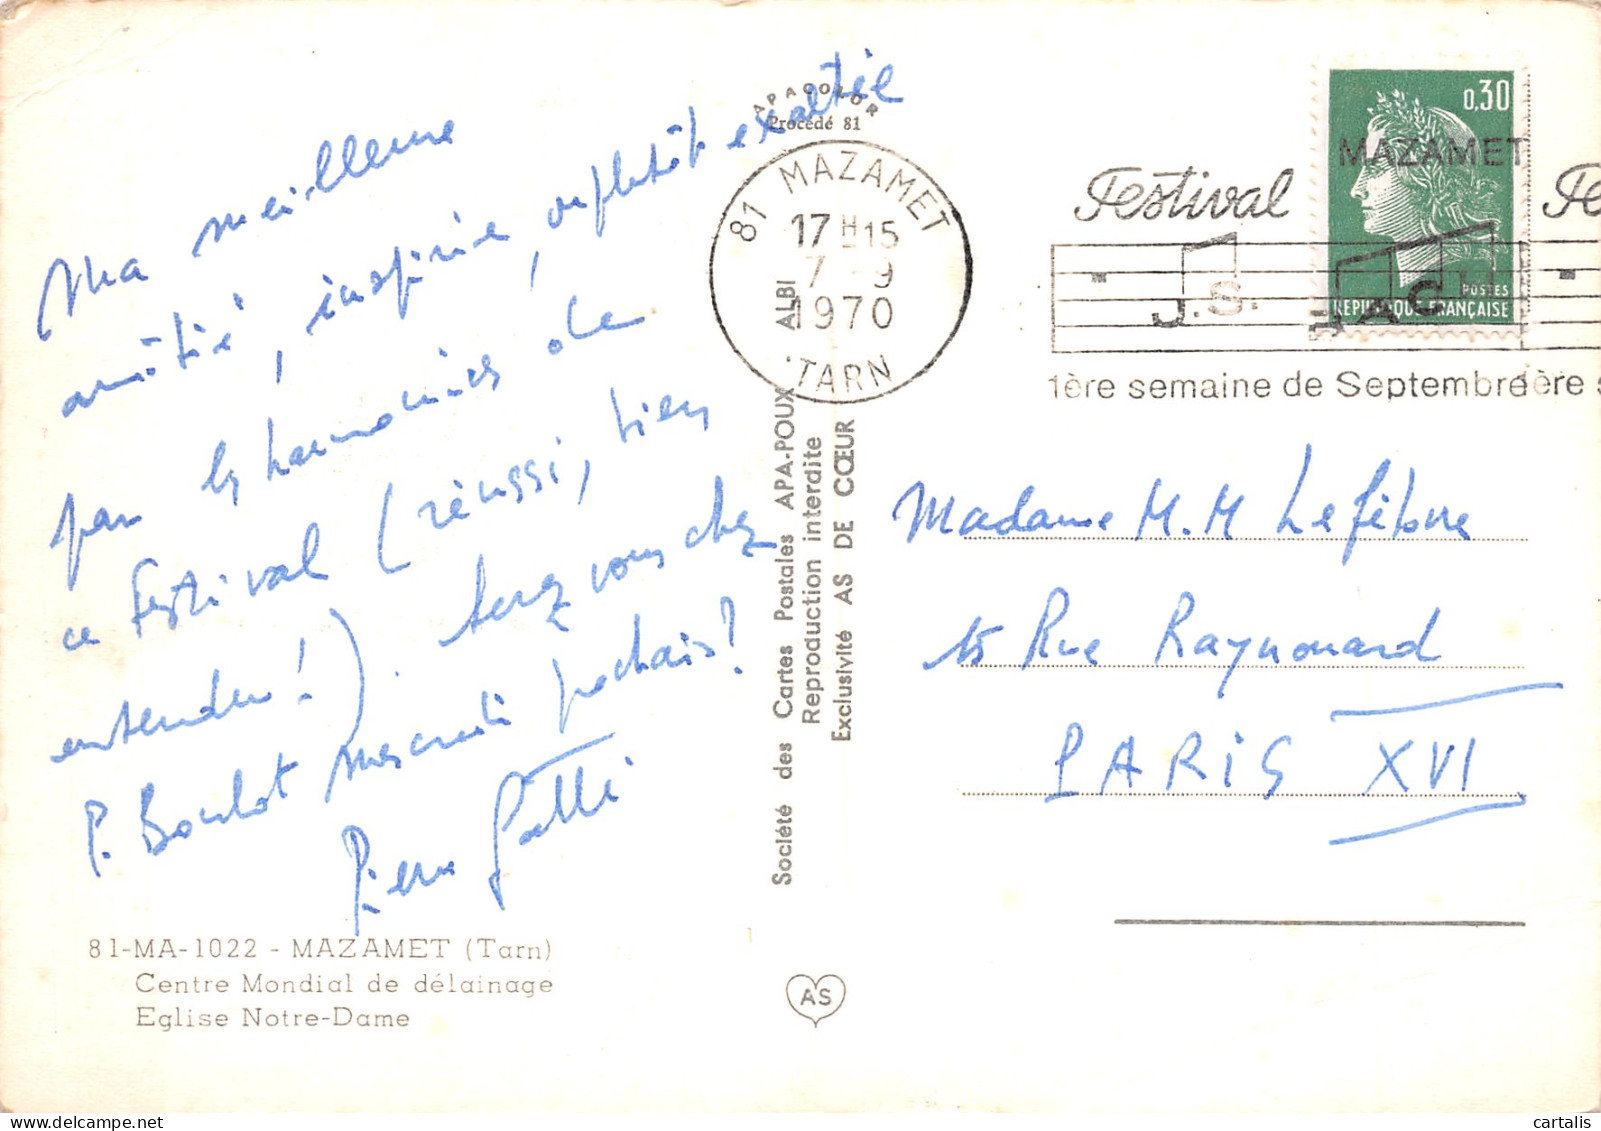 Ma meilleure
amitié, inspirée, ou plutôt exaltée
par les harmonies de
ce festival (réussi, bien
entendu!). Serez vous chez
P. Boulot mercredi prochain?
Pierre
81-MA-1022 - MAZAMET (Tarn)
Centre Mondial de délainage
Eglise Notre-Dame
APACOLOR
Procédé 81
81 MAZAMET
17 H 15
7 - 9
1970
TARN
Société des Cartes Postales APA-POUX ALBI
Reproduction interdite
Exclusivité AS DE CŒUR
AS
0,30
MAZAMET
Festival Fe
J.S. BACH
POSTES
REPUBLIQUE FRANÇAISE
1ère semaine de Septembre 1ère s
Madame M. M Lefèbvre
15 Rue Raynouard
PARIS XVI
cartalis